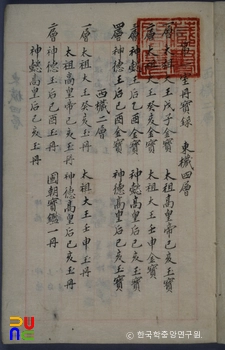 冊寶錄 東欌四層
一層 太祖大王戊子金寶 太祖高皇帝己亥玉寶
太祖大王癸亥金寶 太祖大王壬申金寶
層 神懿王后乙酉金寶 神懿高皇后己亥玉寶
四層 神德王后己酉金寶 神德高皇后己亥玉寶
西欌二層
一層 太祖大王癸亥玉冊 太祖大王壬申玉冊
太祖高皇帝己亥玉冊 神德高皇后己亥玉冊
二層 神懿高皇后己亥玉冊 國朝寶鑑一冊
© 한국학중앙연구원.